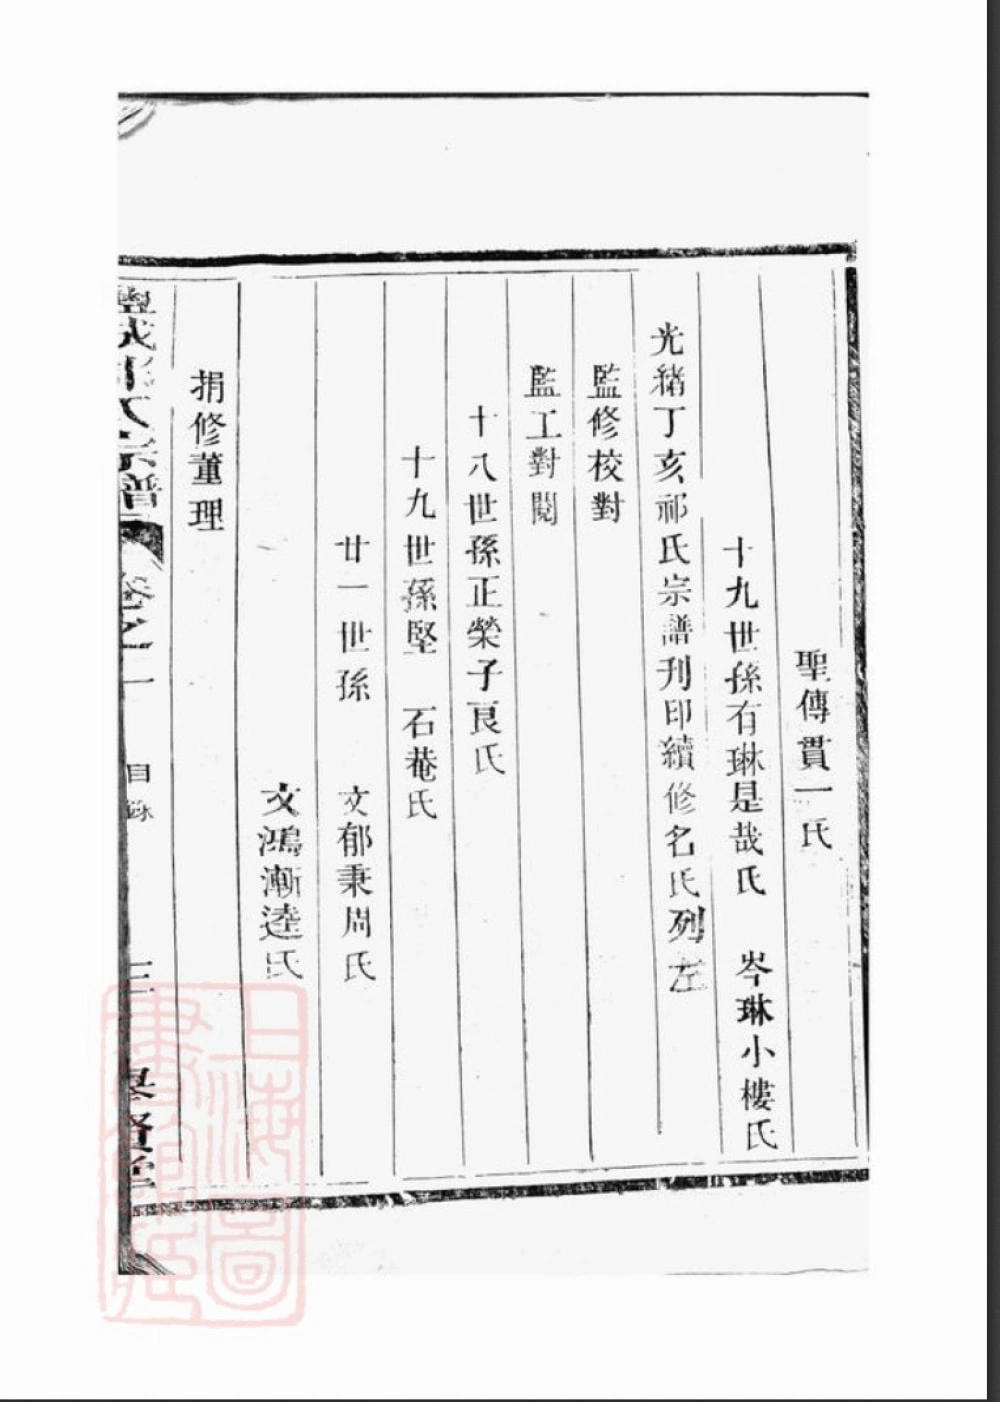 聖傳貫一氏
十九世孫有琳是哉氏 岑琳小樓氏
光緒丁亥祁氏宗譜刊印續修名氏列左
監修校對
監工對閱
十八世孫正榮子良氏
十九世孫堅 石菴氏
廿一世孫 文郁秉周氏
文鴻漸逵氏
捐修董理
氏宗譜 卷之一 目錄 三 賢堂
上海圖書館藏